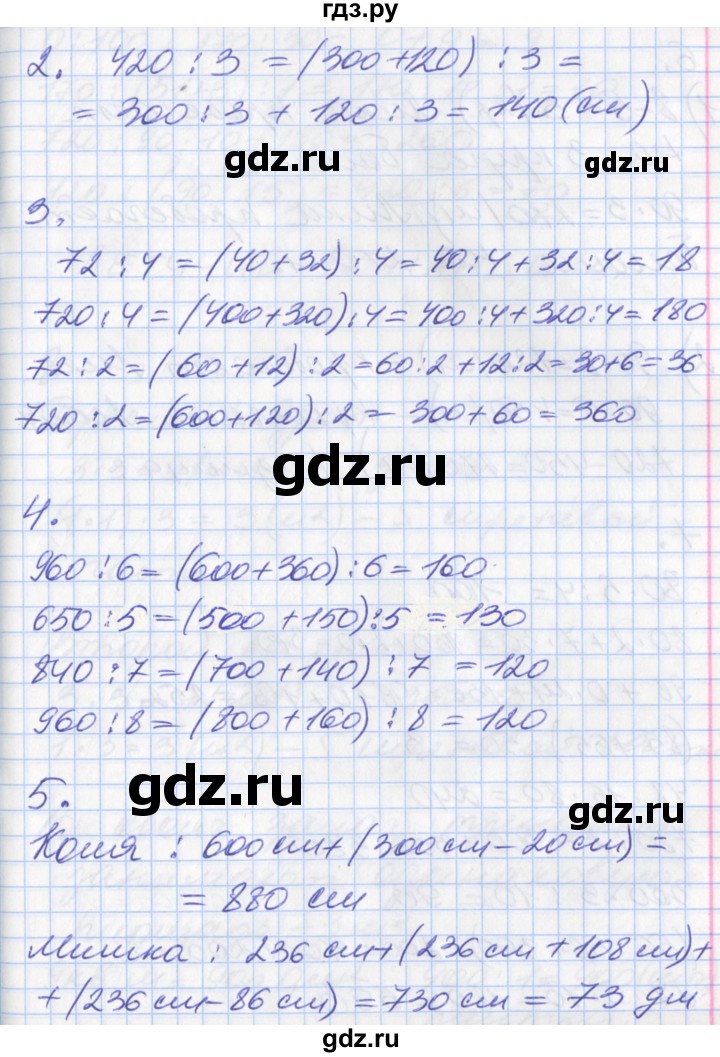 гдз.ру
2. 420 : 3 = (300+120) : 3 =
= 300 : 3 + 120 : 3 = 140 (см)
gdz.ru
gdz.ru
3.
72 : 4 = (40+32) : 4 = 40 : 4 + 32 : 4 = 18
720 : 4 = (400+320) : 4 = 400 : 4 + 320 : 4 = 180
72 : 2 = (60 + 12) : 2 = 60 : 2 + 12 : 2 = 30+6 = 36
720 : 2 = (600+120) : 2 = 300 + 60 = 360
gdz.ru
4.
960 : 6 = (600+360) : 6 = 160
650 : 5 = (500 + 150) : 5 = 130
840 : 7 = (700 + 140) : 7 = 120
960 : 8 = (800 + 160) : 8 = 120
5.
gdz.ru
gdz.ru
Коля : 600 см + (300 см - 20 см) =
= 880 см
Мишка : 236 см + (236 см + 108 см) +
+ (236 см - 86 см) = 730 см = 73 дм
gdz.ru